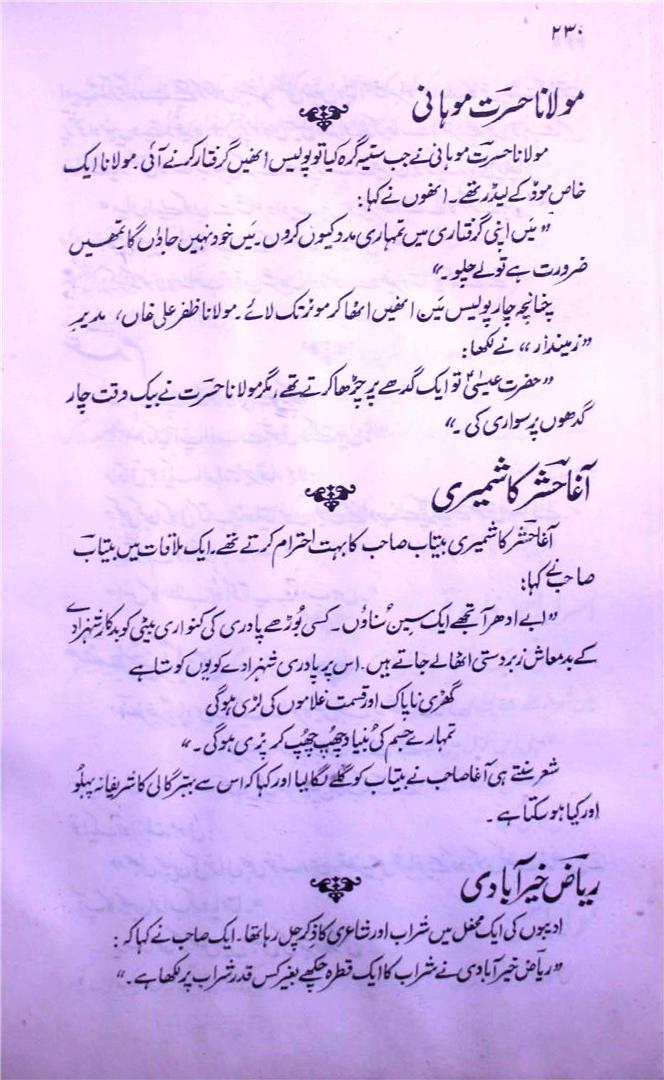 ۲۳۰
مولانا حسرت موہانی
مولانا حسرت موہانی نے جب ستیہ گرہ کیا تو پولیس انھیں گرفتار کرنے آئی۔ مولانا ایک
خاص موڈ کے لیڈر تھے۔ انھوں نے کہا:
”میں اپنی گرفتاری میں تمہاری مدد کیوں کروں۔ میں خود نہیں جاؤں گا تمھیں
ضرورت ہے تو لے چلو۔“
چنانچہ چار پولیس مین انھیں اٹھا کر موٹر تک لائے۔ مولانا ظفر علی خاں، مدیر
”زمیندار“ نے لکھا:
”حضرت عیسیٰؑ تو ایک گدھے پر چڑھا کرتے تھے، مگر مولانا حسرت نے بیک وقت چار
گدھوں پر سواری کی۔“
آغا حشر کاشمیری
آغا حشر کاشمیری بیتاب صاحب کا بہت احترام کرتے تھے۔ ایک ملاقات میں بیتاب
صاحب نے کہا:
”ابے ادھر آ تجھے ایک سین سُناؤں۔ کسی بُوڑھے پادری کی کنواری بیٹی کو بدکار شہزادے
کے بدمعاش زبردستی اٹھا لے جاتے ہیں۔ اس پر پادری شہزادے کو یوں کوستا ہے
گھڑی ناپاک اور قسمت غلاموں کی لڑی ہوگی
تمہارے جسم کی بُنیاد چھپ چھپ کر پڑی ہوگی۔“
شعر سنتے ہی آغا صاحب نے بیتاب کو گلے لگا لیا اور کہا کہ اس سے بہتر گالی کا شریفانہ پہلُو
اور کیا ہو سکتا ہے۔
ریاض خیرآبادی
ادیبوں کی ایک محفل میں شراب اور شاعری کا ذکر چل رہا تھا۔ ایک صاحب نے کہا کہ:
”ریاض خیرآبادی نے شراب کا ایک قطرہ چکھے بغیر کس قدر شراب پر لکھا ہے۔“